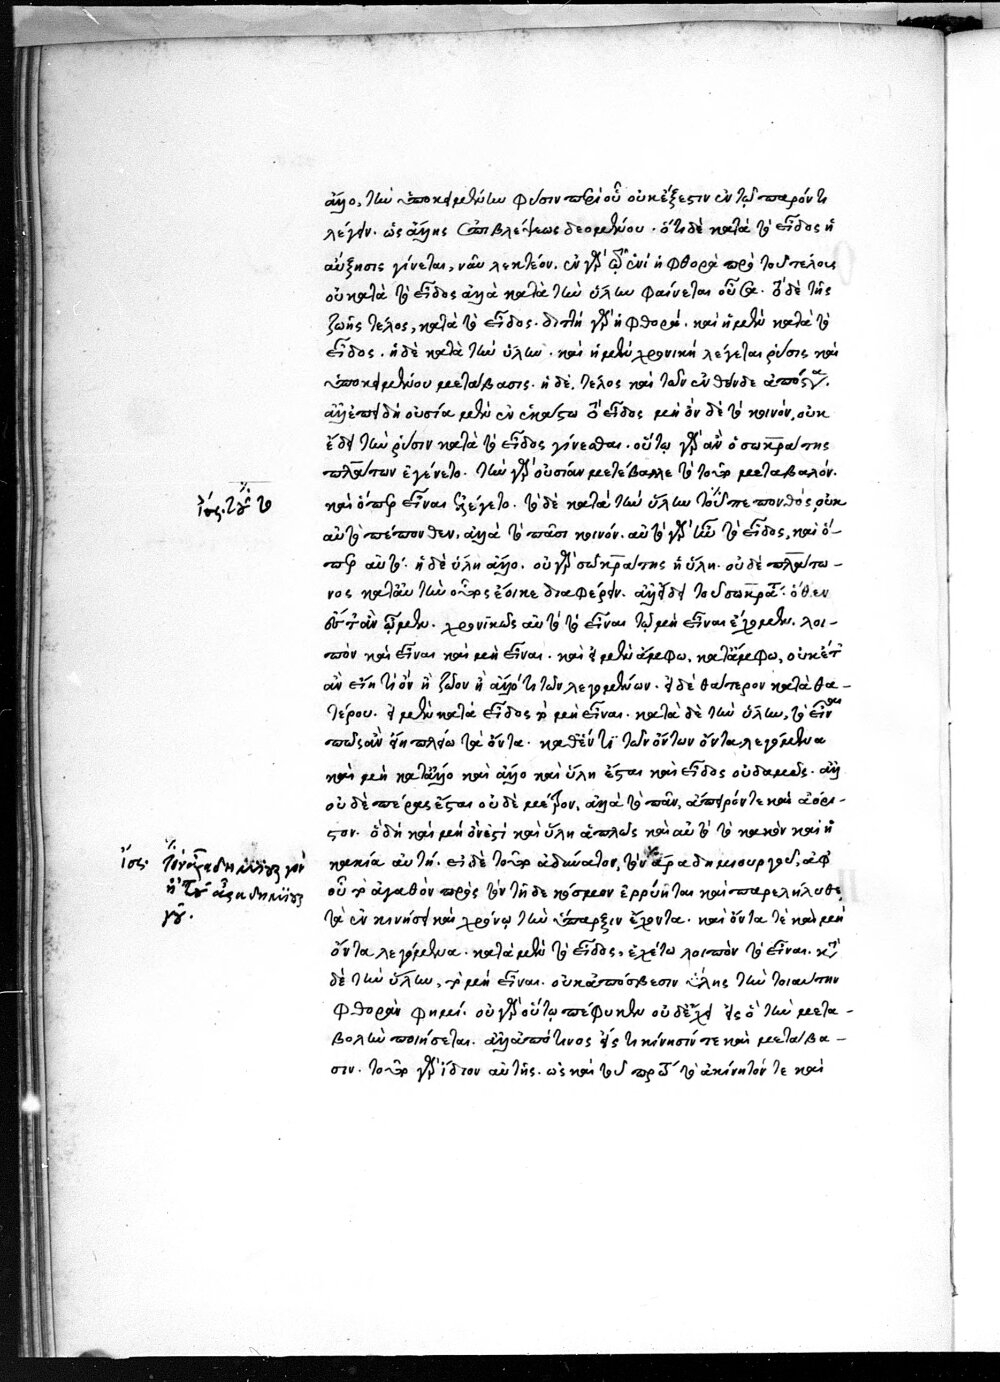 ἄλλο, τὴν ὑποκειμένην φύσιν περὶ οὗ οὐκ ἔξεστιν ἐν τῷ παρόντι
λέγειν. ὡς ἄλλης ἐπιβλέψεως δεομένου. ὅτι δὲ κατὰ τὸ εἶδος ἡ
αὔξησις γίνεται, νῦν λεκτέον. ἐν γὰρ ἡ φθορὰ πρὸ τοῦ τέλους
οὐ κατὰ τὸ εἶδος ἀλλὰ κατὰ τὴν ὕλην φαίνεται οὖσα. ὁ δὲ τῆς
ζωῆς τέλος, κατὰ τὸ εἶδος. διττὴ γὰρ ἡ φθορά. καὶ ἡ μὲν κατὰ τὸ
εἶδος. ἡ δὲ κατὰ τὴν ὕλην. καὶ ἡ μὲν χρονικὴ λέγεται ῥύσις καὶ
ὑποκειμένου μετάβασις. ἡ δὲ, τέλος καὶ τῶν ἐνθένδε
ἀλλ' ἐπειδὴ οὐσία μὲν ἐν ἑκάστῳ τὸ εἶδος μὴ ὂν δὲ τὸ κοινόν, οὐκ
ἔδει τὴν ῥύσιν κατὰ τὸ εἶδος γίνεσθαι. οὕτω γὰρ ἂν ὁ σωκράτης
πλάτων ἐγένετο. τὴν γὰρ οὐσίαν μετέβαλλε τὸ τοῦτο μεταβαλόν.
καὶ ὅπερ εἶναι ἐλέγετο. τὸ δὲ κατὰ τὴν ὕλην τοῦτο πεπονθός, οὐκ
αὐτὸ πέπονθεν, ἀλλὰ τὸ πᾶσι κοινόν. αὐτὸ γὰρ ἦν τὸ εἶδος, καὶ ὅ-
περ αὐτό. ἡ δὲ ὕλη ἄλλο. οὐ γὰρ σωκράτης ἡ ὕλη. οὐδὲ πλάτω-
νος κατ' αὐτὴν οὗτος ἔοικε διαφέρειν. ἀλλ' εἴδει τοῦ σωκράτους. ὅθεν
χρονικῶς αὐτὸ τὸ εἶναι τῷ μὴ εἶναι ἐλέγομεν. λοι-
πὸν καὶ εἶναι καὶ μὴ εἶναι. καὶ εἰ μὲν ἄμφω, κατ' ἄμφω, οὐκέτι
ἂν εἴη τι ὂν ἢ ζῶον ἢ ἄλλο τι τῶν λεγομένων. εἰ δὲ θάτερον κατὰ θα-
τέρου. εἰ μὲν κατὰ εἶδος τὸ μὴ εἶναι. κατὰ δὲ τὴν ὕλην, τὸ εἶναι
πῶς ἂν εἴη πλείω τὰ ὄντα. καθ' ἕν τι τῶν ὄντων ὄντα λεγόμενα
καὶ μὴ κατ' ἄλλο καὶ ἄλλο καὶ ὕλη ἔσται καὶ εἶδος οὐδαμῶς. ἀλλ'
οὐδὲ πέρας ἔσται οὐδὲ μέτρον, ἀλλὰ τὸ πᾶν, ἄπειρόν τε καὶ ἀόρι-
στον. ὁ δὴ καὶ μὴ ὄν ἐστι καὶ ὕλη ἁπλῶς καὶ αὐτὸ τὸ κακὸν καὶ ἡ
κακία αὐτή. εἰ δὲ τοῦτο ἀδύνατον, τὸν ἄρα δημιουργοῦ, ἀφ'
οὗ τὸ ἀγαθὸν πρὸς τὸν τῇδε κόσμον ἐρρύηται καὶ παρελήλυθε
τὰ ἐν κινήσει καὶ χρόνῳ τὴν ὕπαρξιν ἔχοντα. καὶ ὄντα τε καὶ μὴ
ὄντα λεγόμενα. κατὰ μὲν τὸ εἶδος, ἐχέτω λοιπὸν τὸ εἶναι. κατὰ
δὲ τὴν ὕλην, τὸ μὴ εἶναι. οὐκ ἀπόσβεσιν ὕλης τὴν τοιαύτην
φθορὰν φημί. οὐ γὰρ οὕτω πέφυκεν οὐδ' ἔχει εἰς ὃ τὴν μετα-
βολὴν ποιήσεται. ἀλλ' ἀπό τινος εἴς τι κίνησίν τε καὶ μετάβα-
σιν. τοῦτο γὰρ ἴδιον αὐτῆς. ὡς καὶ τοῦ πρώτου τὸ ἀκίνητόν τε καὶ
ἴσ. τοῦτο
ἴσ. δημιουργὸν
ἢ τοῦ ἄρα δημιουρ
γοῦ.